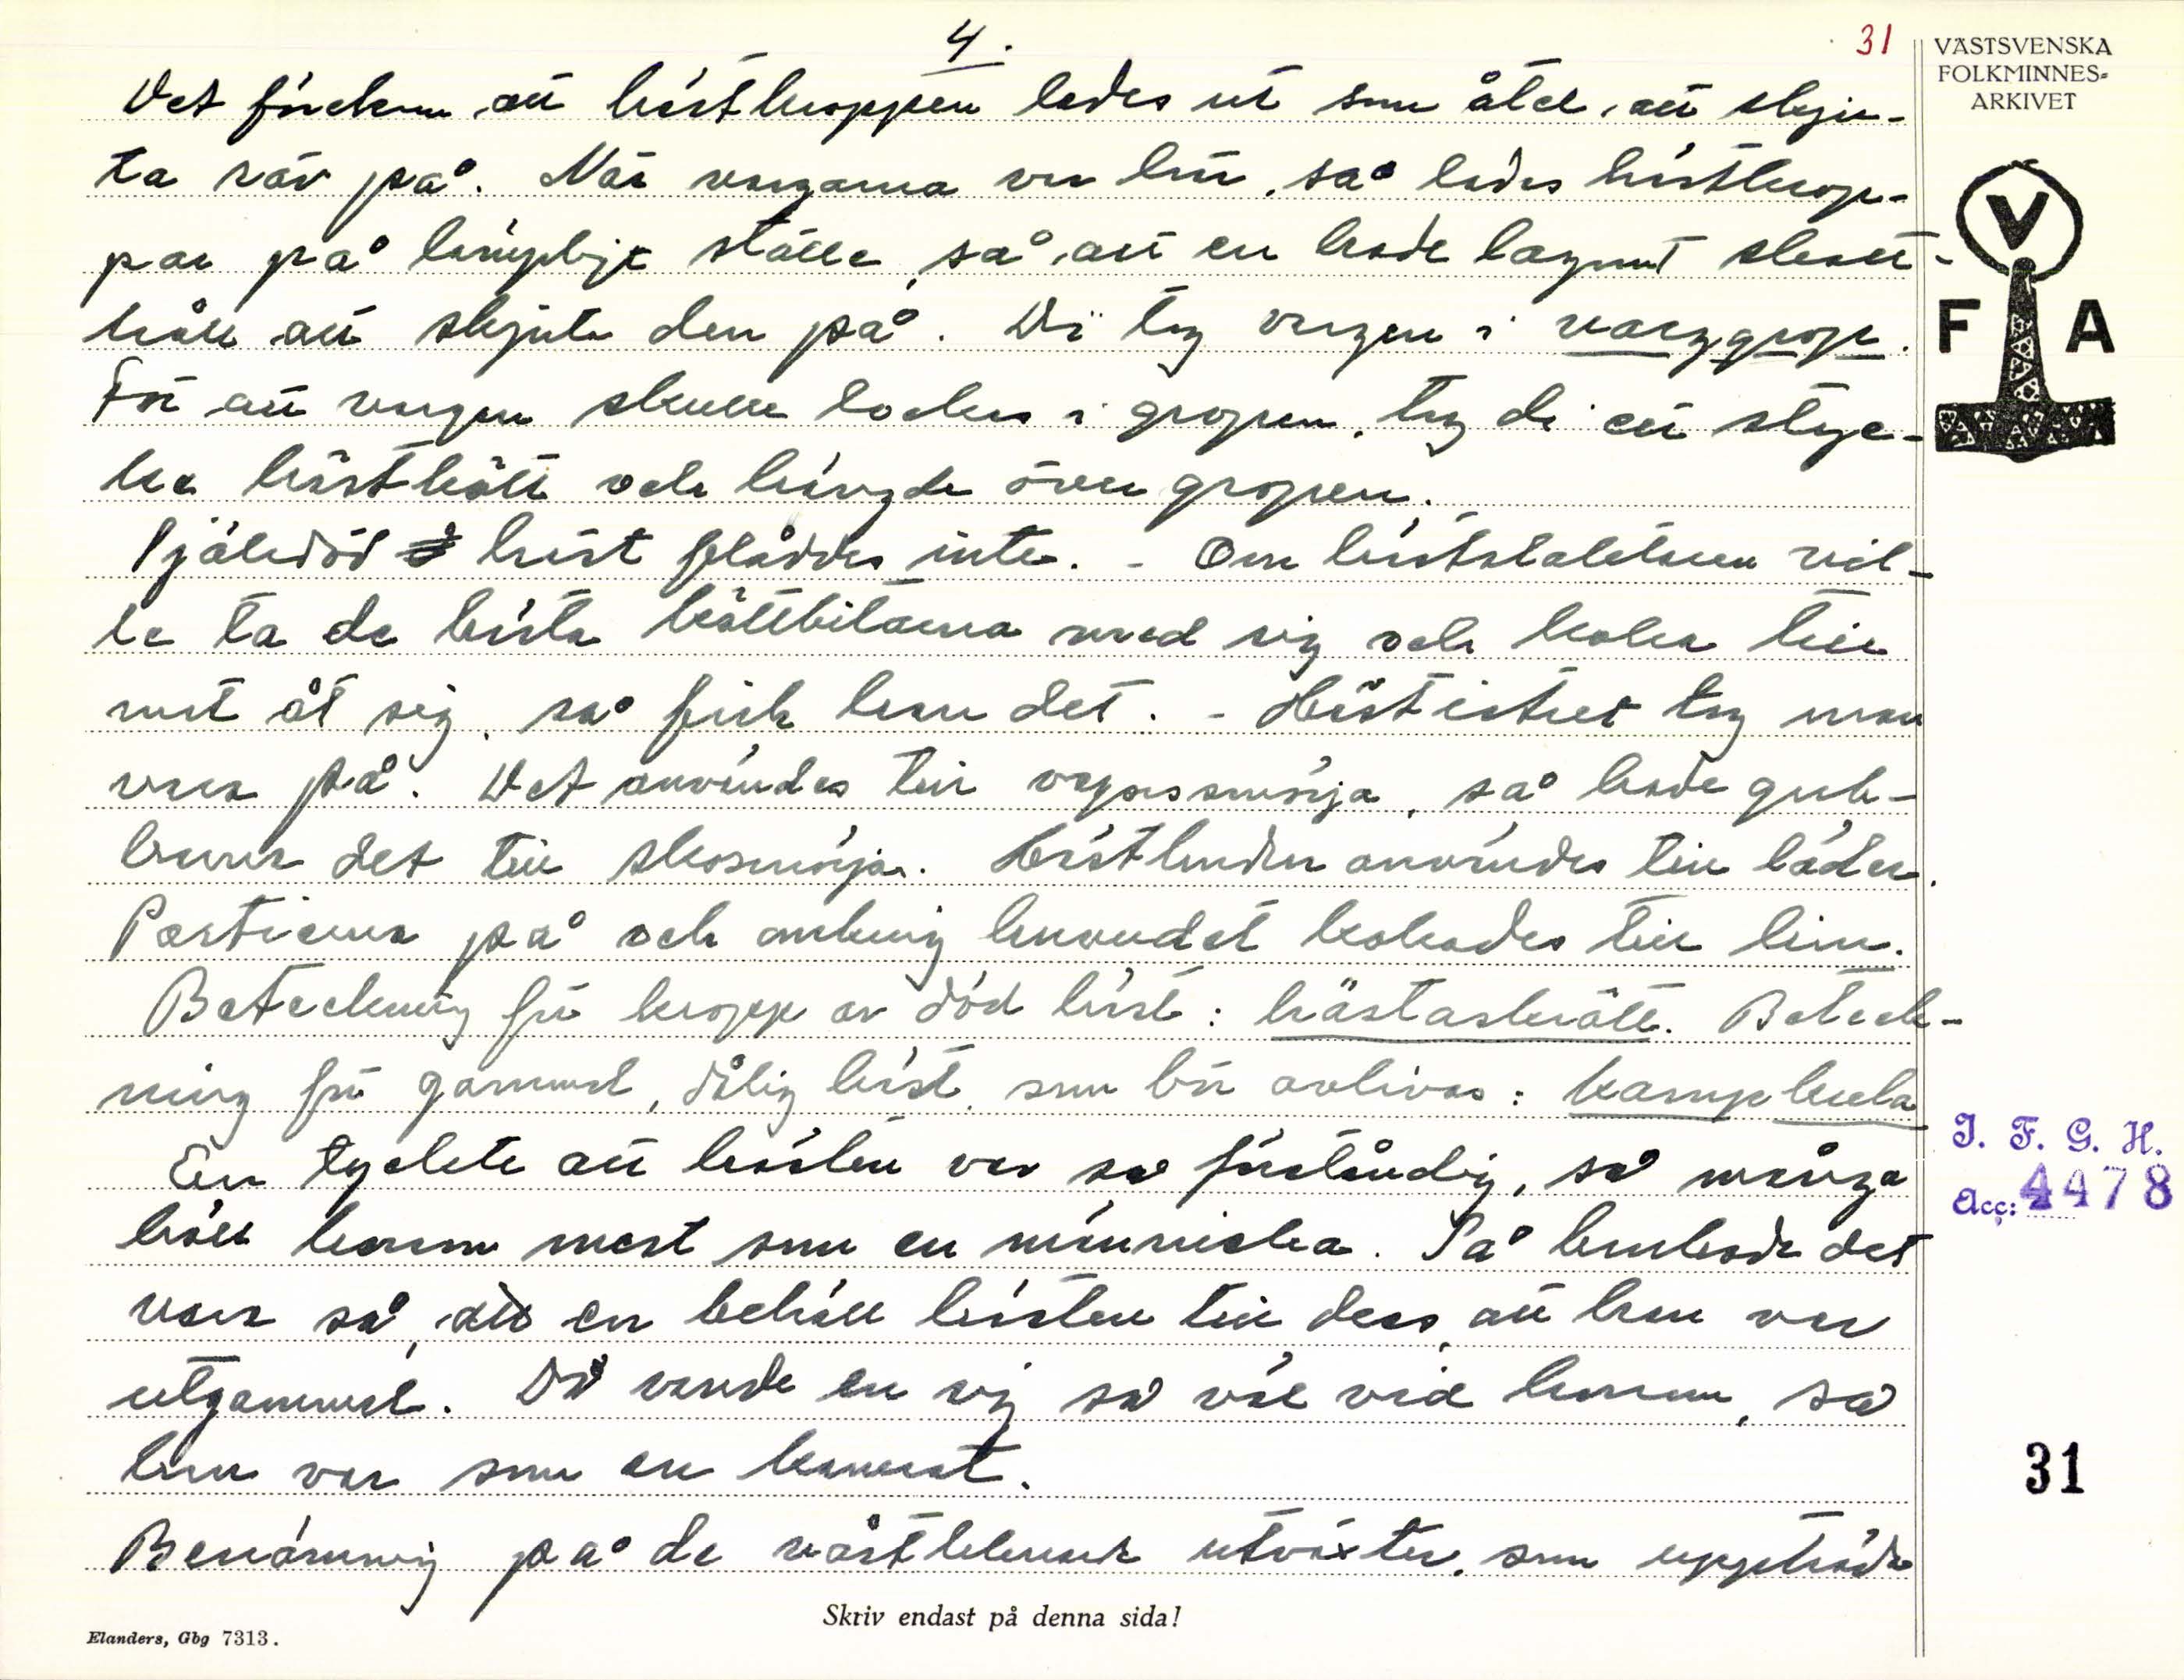 4.
31
VÄSTSVENSKA
FOLKMINNES=
ARKIVET
Det förekom att hästkroppen lades ut som åtel, att skju-
ta räv på. När vargarna var här, så lades hästkrop-
par på lämpligt ställe, så att en hade lagomt skott-
håll att skjuta den på. Di tog vargen i varggrop.
För att vargen skulle lockas i gropen, tog de ett styc-
ke hästkött och hängde över gropen.
V
F A
Självdöd häst flåddes inte. - Om hästslaktaren vil-
le ta de bästa köttbitarna med sig och koka till
mat åt sig, så fick han det. - Hästistret tog man
vara på. Det användes till vagnssmörja, så hade gub-
barna det till skosmörja. Hästhuden användes till läder.
Partierna på och omkring huvudet kokades till lim.
Beteckning för kropp av död häst: hästaskrått. Beteck-
ning för gammal, dålig häst, som bör avlivas: kampkula
En tyckte att hästen var så förståndig, så många
höll honom mest som en människa. Så brukade det
vara så, att en behöll hästen till dess, att han var
utgammal. Då vande en sig så väl vid honom, så
han var som en kamrat.
Benämning på de vårtliknande utväxter, som uppträdde
I. F. G. H.
Acc: 4478
31
Skriv endast på denna sida!
Elanders, Gbg 7313.